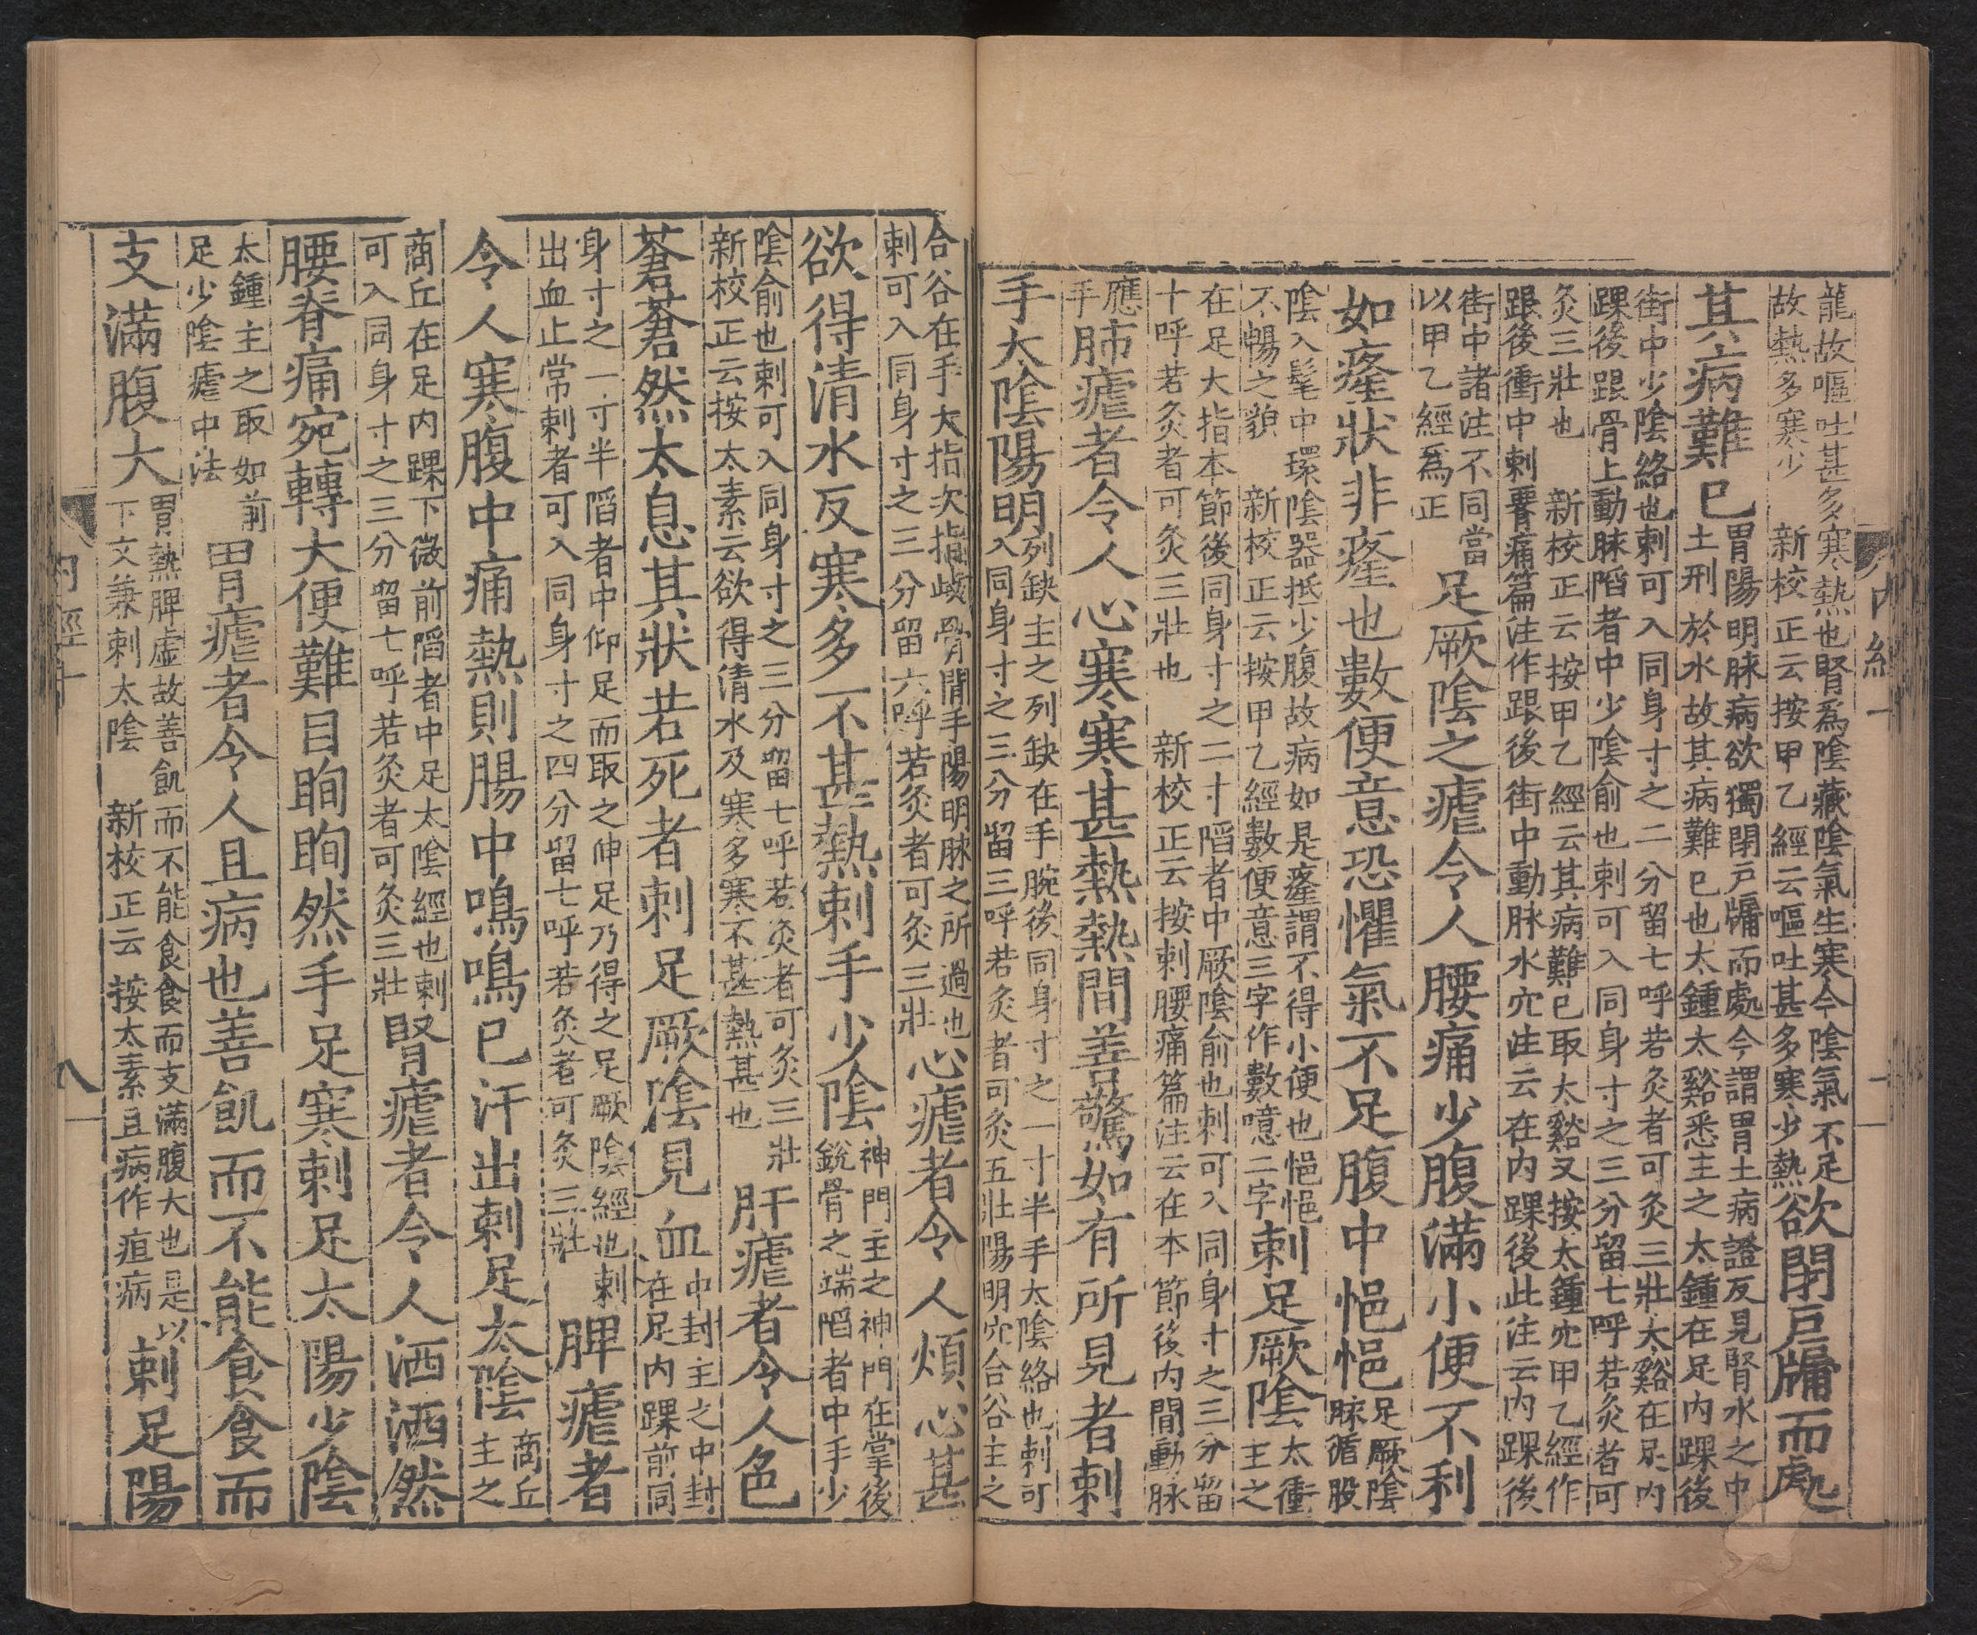 龍故嘔吐甚多寒熱也腎爲陰藏陰氣生寒今陰氣不足
故熱多寒少　新校正云按甲乙經云嘔吐甚多寒少熱
欲閉戶牖而處
其病難已
胃陽明脉病欲獨閉戶牖而處今謂胃土病證反見腎水之中
土刑於水故其病難已也太鍾太谿悉主之太鍾在足内踝後
街中少陰絡也刺可入同身寸之二分留七呼若灸者可灸三壯太谿在足内
踝後跟骨上動脉陷者中少陰俞也刺可入同身寸之三分留七呼若灸者可
灸三壯也　新校正云按甲乙經云其病難已取太谿又按太鍾穴甲乙經作
跟後衝中刺腰痛篇注作跟後街中動脉水穴注云在内踝後此注云内踝後
街中諸注不同當
以甲乙經爲正
足厥陰之瘧令人腰痛少腹滿小便不利
如癃狀非癃也數便意恐懼氣不足腹中悒悒
足厥陰
脉循股
陰入髦中環陰器抵少腹故病如是癃謂不得小便也悒悒
不暢之貌　新校正云按甲乙經數便意三字作數噫二字
刺足厥陰
太衝
主之
在足大指本節後同身寸之二寸陷者中厥陰俞也刺可入同身寸之三分留
十呼若灸者可灸三壯也　新校正云按刺腰痛篇注云在本節後内間動脉
應
手
肺瘧者令人心寒寒甚熱熱間善驚如有所見者刺
手太陰陽明
列缺主之列缺在手腕後同身寸之一寸半手太陰絡也刺可
入同身寸之三分留三呼若灸者可灸五壯陽明穴合谷主之
合谷在手大指次指歧骨間手陽明脉之所過也
刺可入同身寸之三分留六呼若灸者可灸三壯
心瘧者令人煩心甚
欲得清水反寒多不甚熱刺手少陰
神門主之神門在掌後
銳骨之端陷者中手少
陰俞也刺可入同身寸之三分留七呼若灸者可灸三壯
新校正云按太素云欲得清水及寒多寒不甚熱甚也
肝瘧者令人色
蒼蒼然太息其狀若死者刺足厥陰見血
中封主之中封
在足内踝前同
身寸之一寸半陷者中仰足而取之伸足乃得之足厥陰經也刺
出血止常刺者可入同身寸之四分留七呼若灸者可灸三壯
脾瘧者
令人寒腹中痛熱則腸中鳴鳴已汗出刺足太陰
商丘
主之
商丘在足内踝下微前陷者中足太陰經也刺
可入同身寸之三分留七呼若灸者可灸三壯
腎瘧者令人洒洒然
腰脊痛宛轉大便難目眴眴然手足寒刺足太陽少陰
太鍾主之取如前
足少陰瘧中法
胃瘧者令人且病也善飢而不能食食而
支滿腹大
胃熱脾虛故善飢而不能食食而支滿腹大也是以
下文兼刺太陰　新校正云按太素且病作疸病
刺足陽
內經十
八